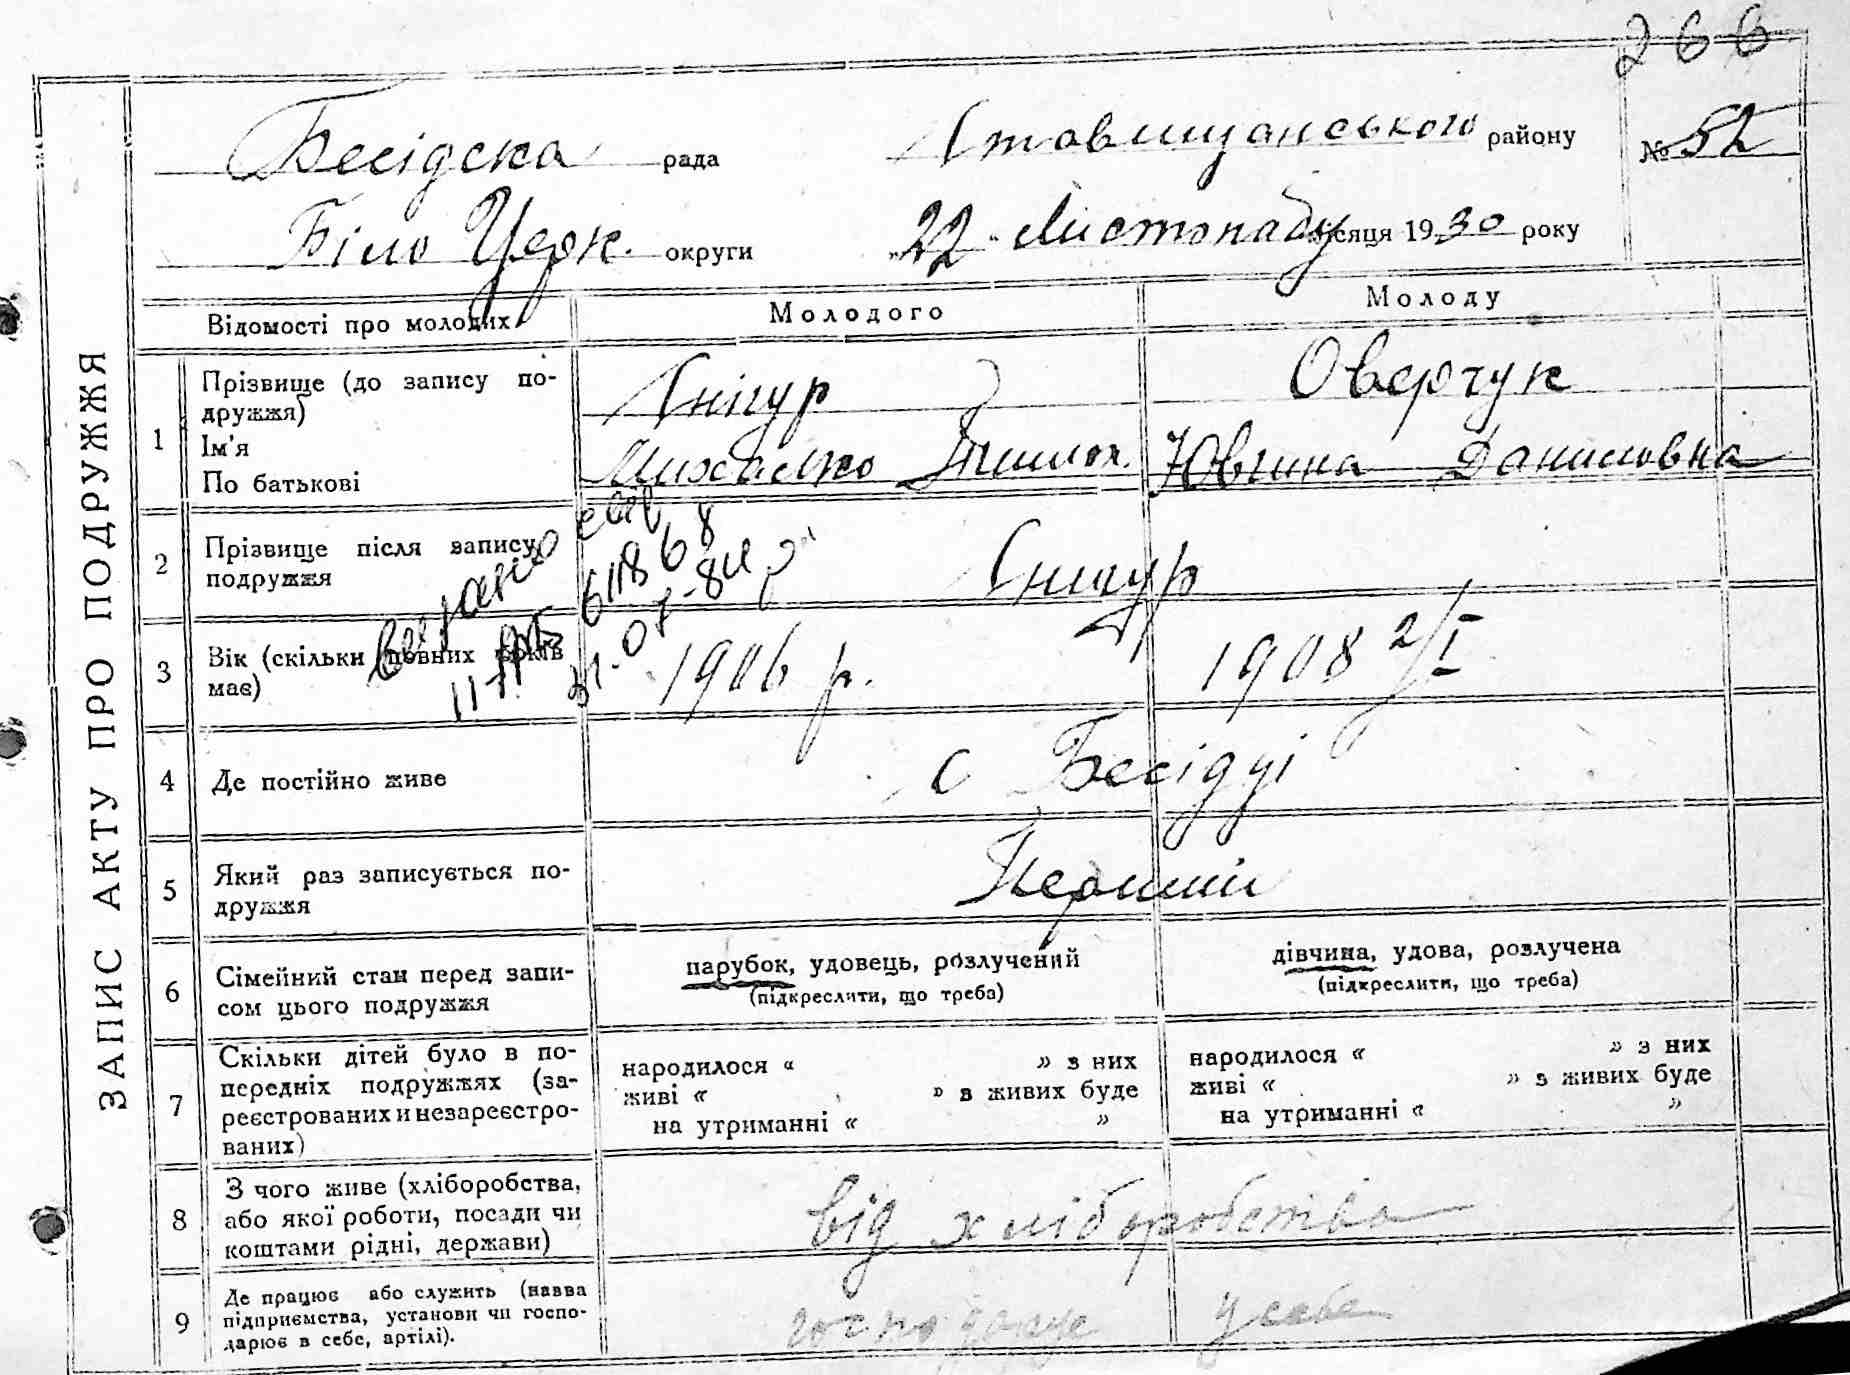 266
Бесідска рада Ставищанського району № 52
Біло Церк. округи „22" Листопаду місяця 1930 року
ЗАПИС АКТУ ПРО ПОДРУЖЖЯ
Відомості про молодих Молодого Молоду
1 Прізвище (до запису по-
дружжя) Снігур Оверчук
Ім'я
По батькові Михалко Ювгина Даниловна
2 Прізвище після запису
подружжя Снігур
видано
611868
3 Вік (скільки повних років
має) 1906 р. 1908 2/I
4 Де постійно живе с Бесідці
5 Який раз записується по-
дружжя Перший
6 Сімейний стан перед запи-
сом цього подружжя
парубок, удовець, розлучений
(підкреслити, що треба)
дівчина, удова, розлучена
(підкреслити, що треба)
7 Скільки дітей було в по-
передніх подружжях (за-
реєстрованих и незареєстро-
ваних)
народилося « » з них
живі « » в живих буде
на утриманні « »
народилося « » з них
живі « » з живих буде
на утриманні « »
8 З чого живе (хліборобства,
або якої роботи, посади чи
коштами рідні, держави) від хліборобства
9 Де працює або служить (назва
підприємства, установи чи госпо-
дарює в себе, артілі). господарує у себе